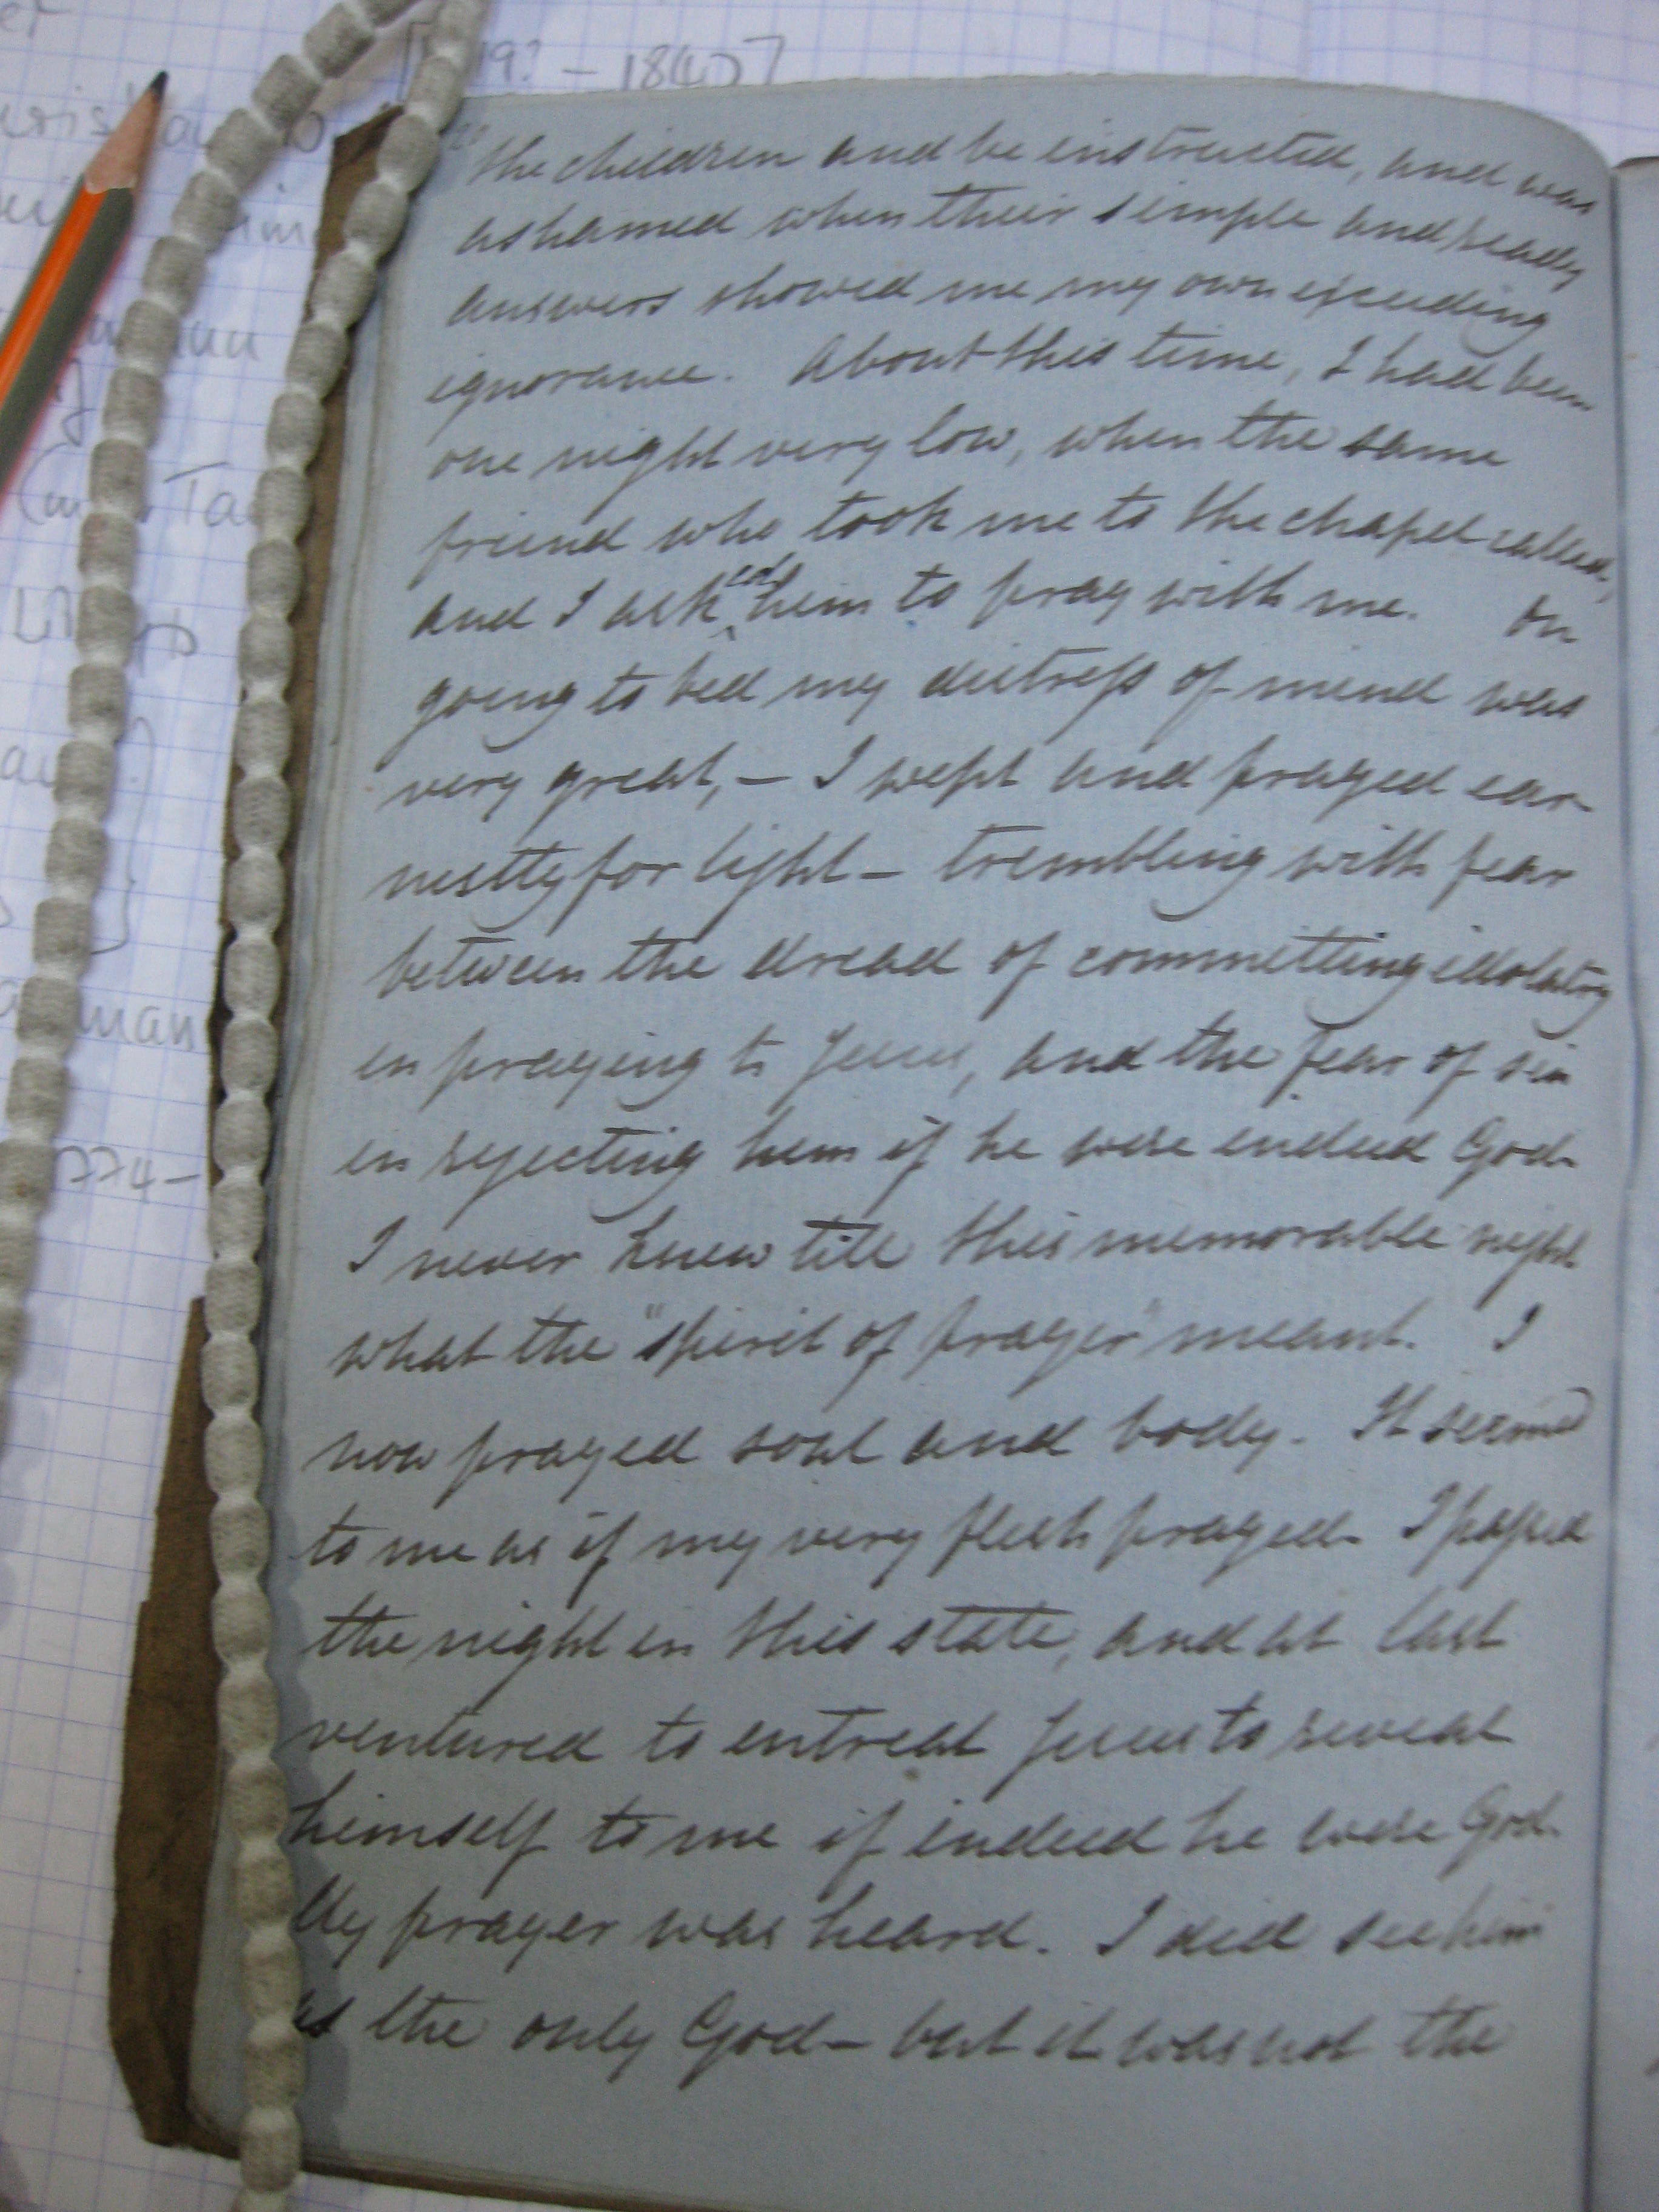 19? – 184
the children and be instructed, and was
ashamed when their simple and ready
answers showed me my own exceeding
ignorance. About this time, I had been
one night very low, when the same
friend who took me to the chapel called,
and I asked him to pray with me. On
going to bed my distress of mind was
very great, – I wept and prayed ear-
nestly for light – trembling with fear
between the dread of committing idolatry
in praying to Jesus, and the fear of sin
in rejecting him if he were indeed God.
I never knew till this memorable night
what the "spirit of prayer" meant. I
now prayed soul and body. It seemed
to me as if my very flesh prayed. I passed
the night in this state, and at last
ventured to entreat Jesus to reveal
himself to me if indeed he were God.
My prayer was heard. I did see him
as the only God – but it was not the
man
774–